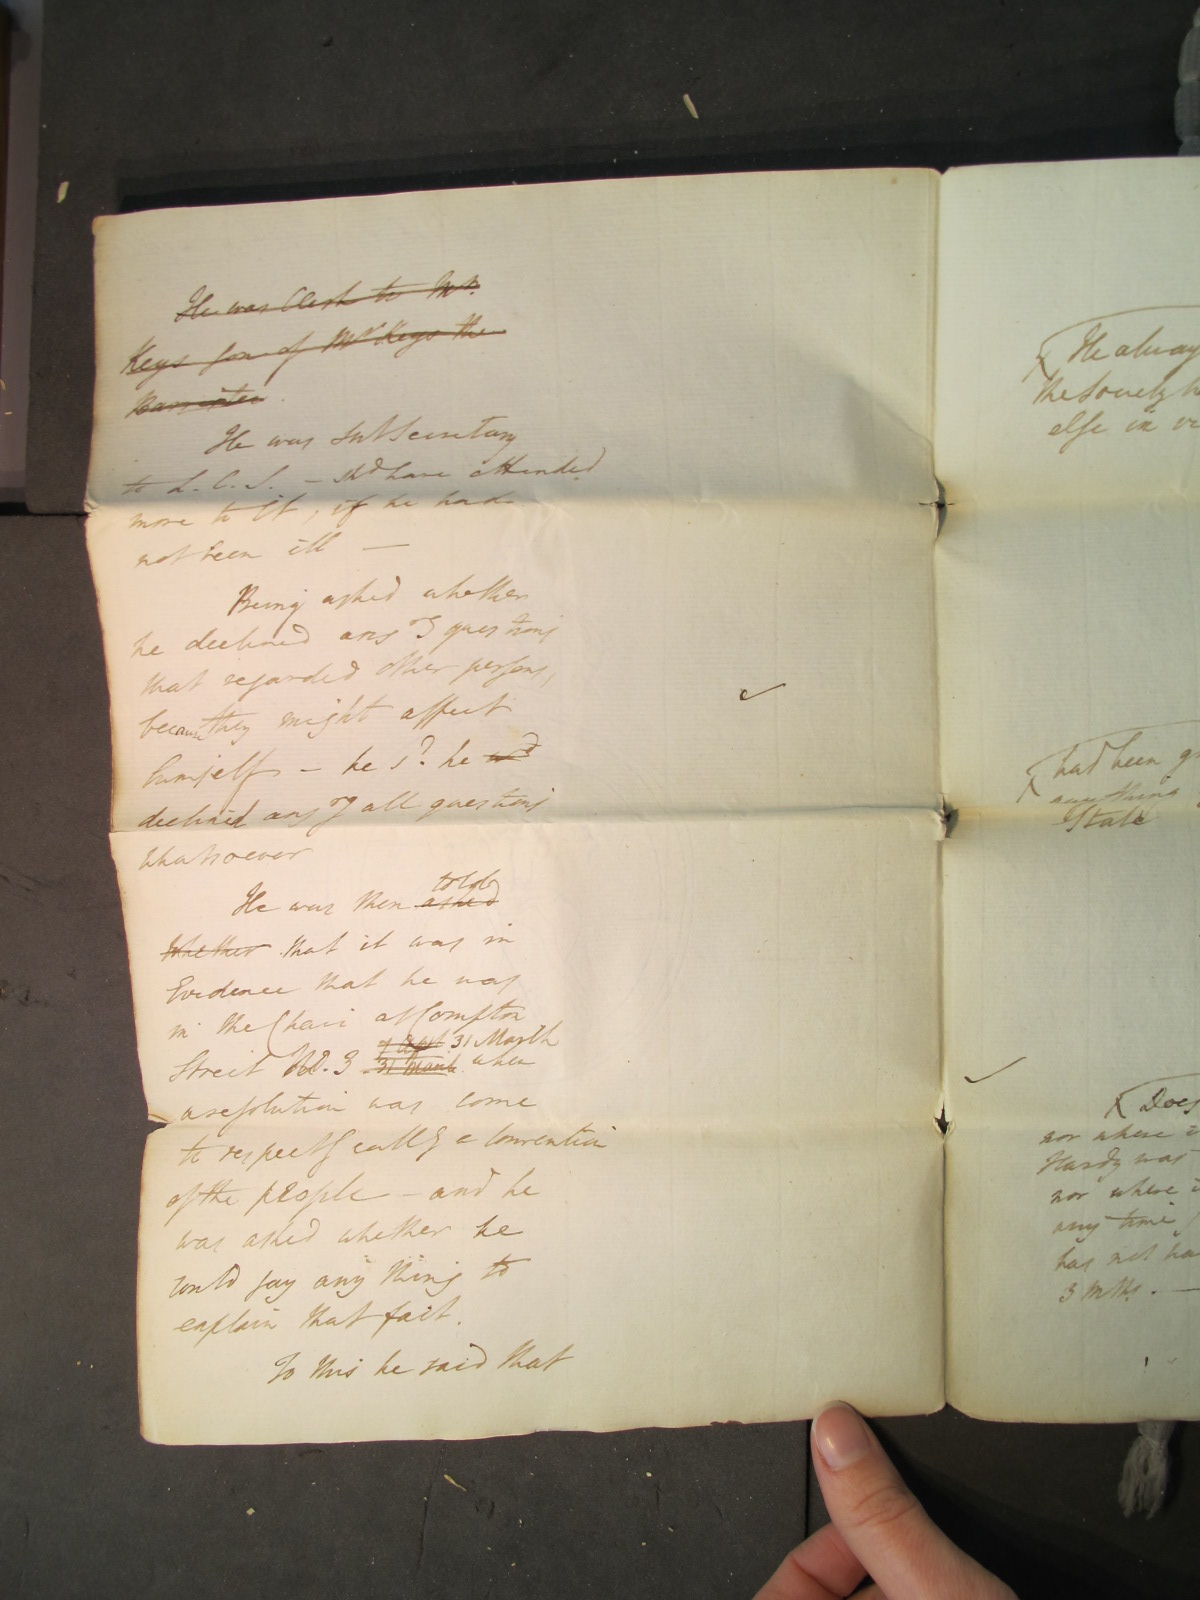 He was Clerk to Mr.
Keys son of Mr Keys the
Barrister.
He was subSecretary
to L. C. S. - shd have attended
more to it, if he had
not been ill —
Being asked whether
he declined ansg questions
that regarded other persons,
because they might affect
himself - he sd. he wd
declined ansg all questions
whatsoever
He was then asked told
whether that it was in
Evidence that he was
in the Chair at Compton
Street No. 3 31 March 31 March when
a resolution was come
to respectg callg a Convention
of the people - and he
was asked whether he
would say any thing to
explain that fact.
To this he said that
He alway
the Society h
else in
had been g
any thing
State
Does
nor where i
Hardy was
nor where i
any time
has not ha
3 Mths. —